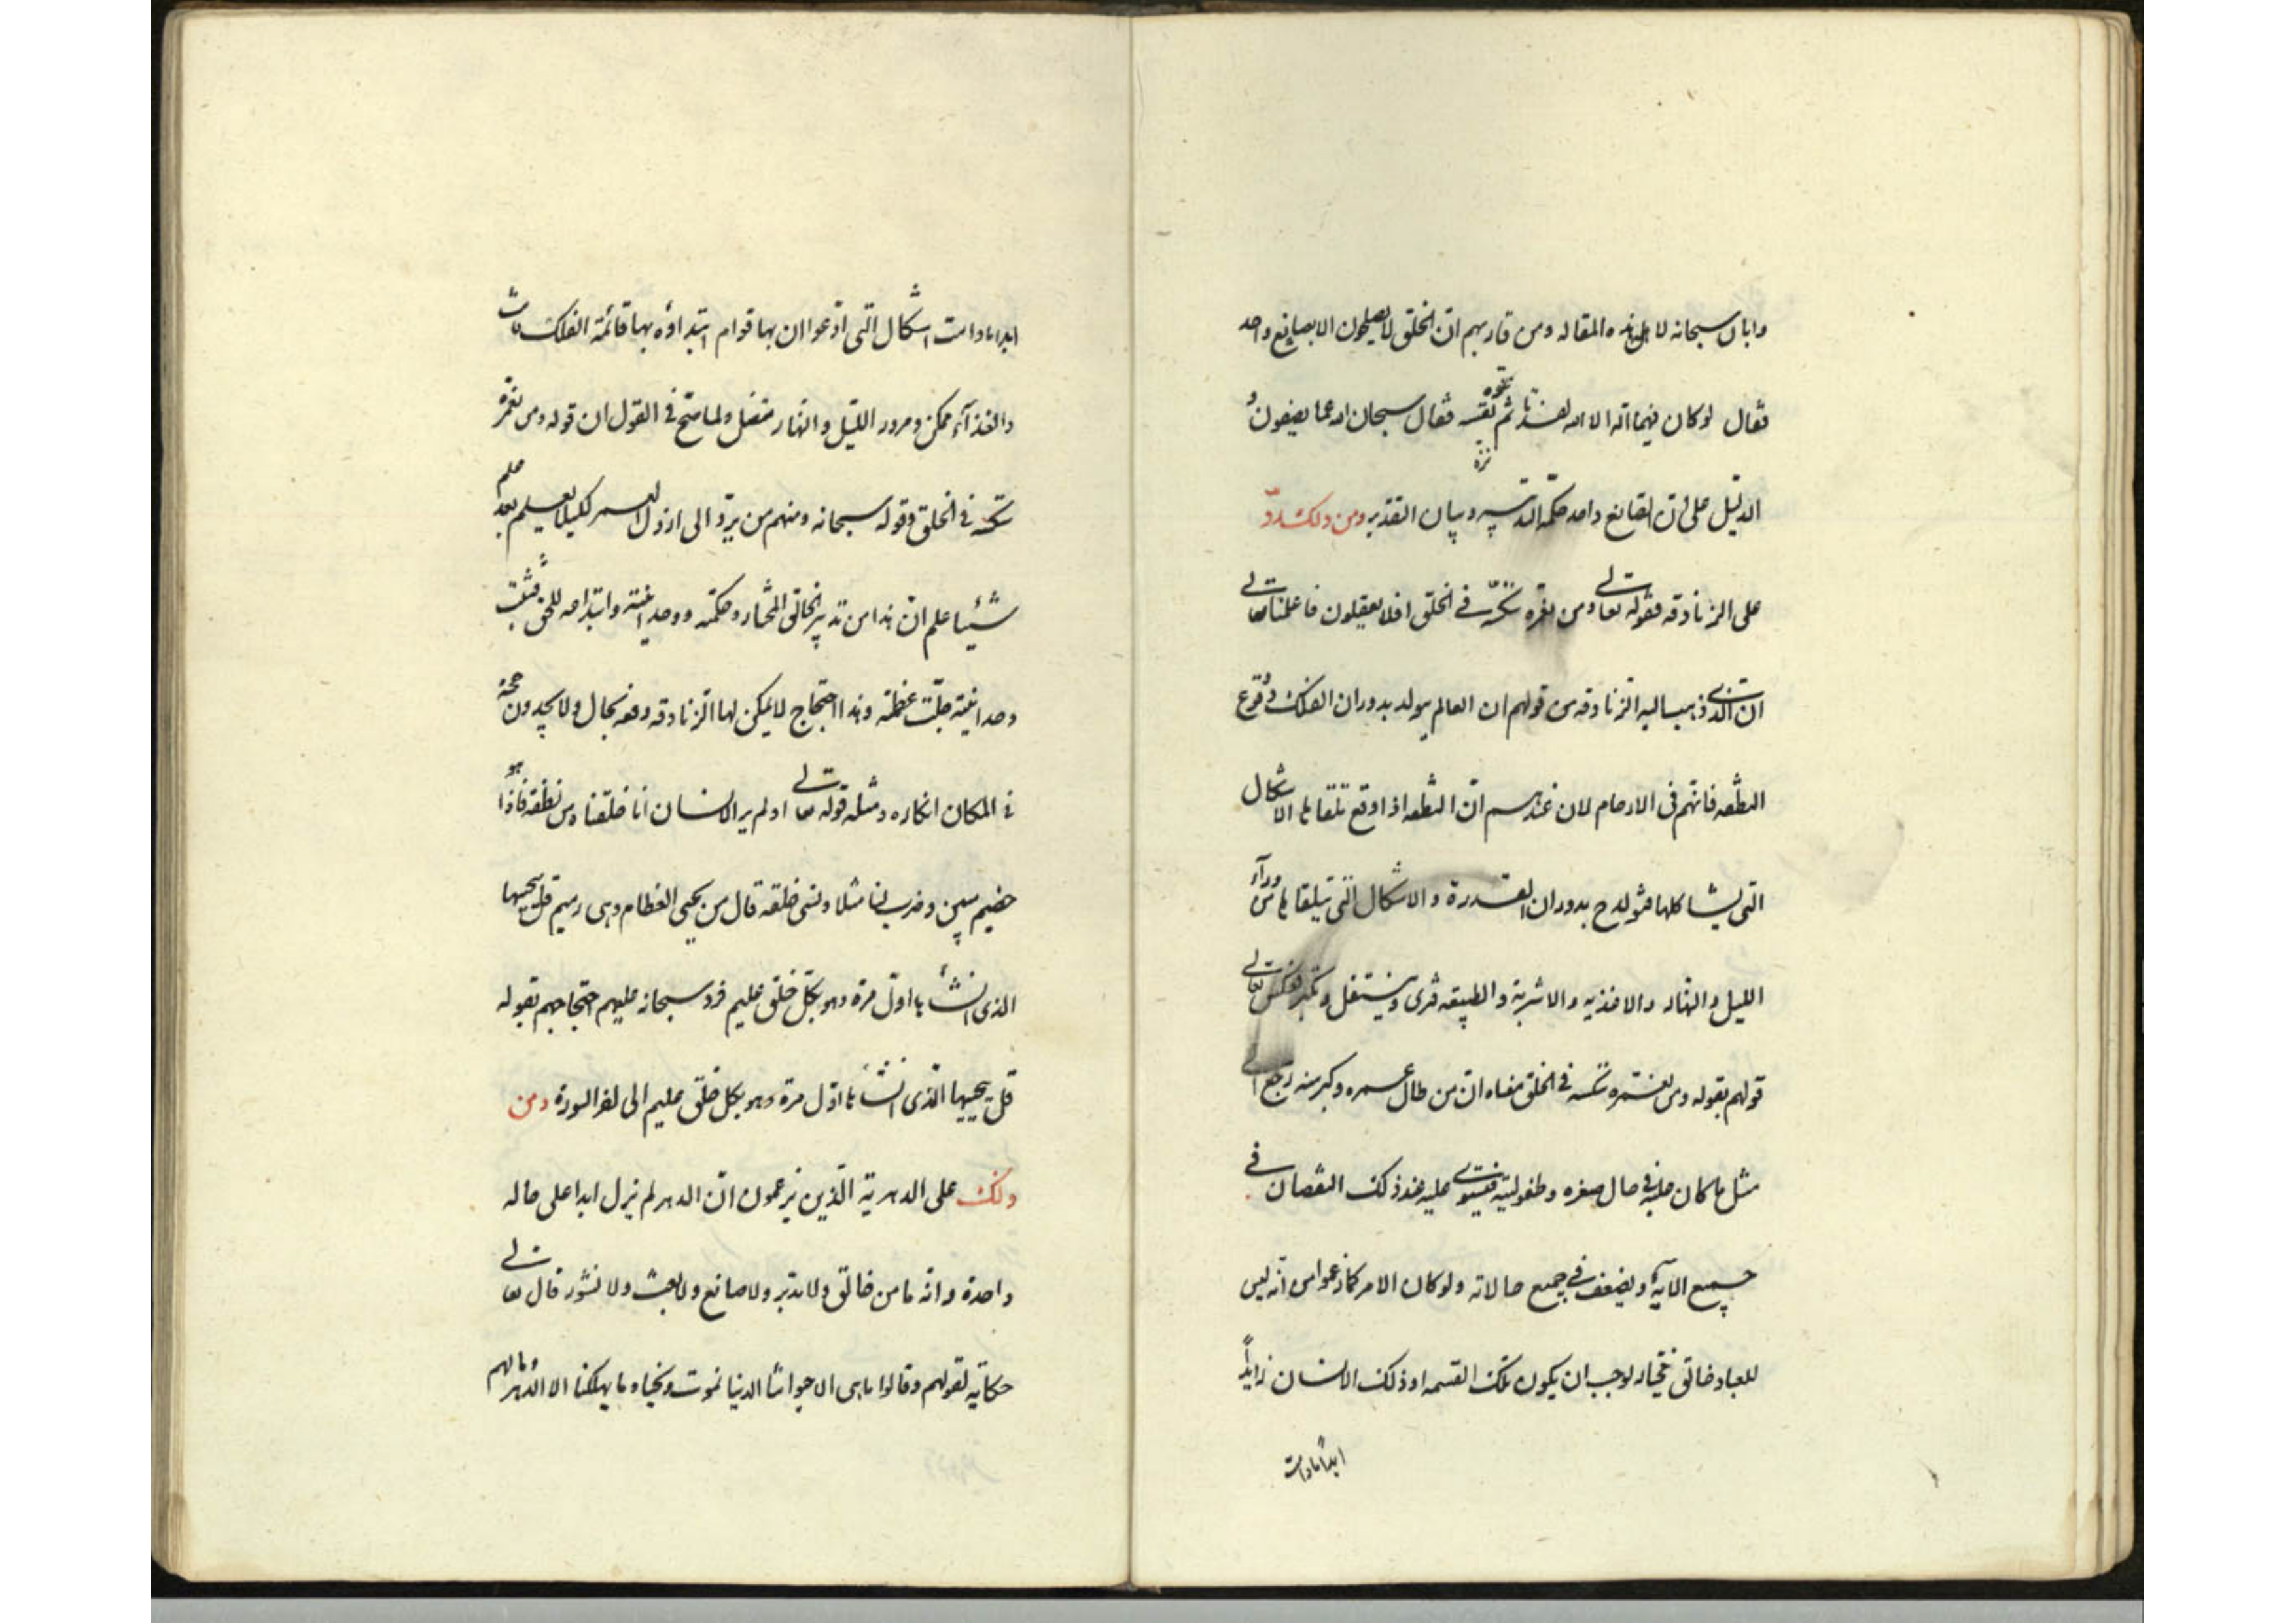 وابان سبحانه لاهل هذه المقاله ومن قاربهم انّ الخلق لا يصلحون الا بصانع واحد
فقال لو كان فيهما الهة الا الله لفسدتا ثم نزه نفسه فقال سبحان الله عما يصفون و
الدليل على انّ الصانع واحد حكمة التدبير وبيان التقدير ومن ذلك ردّ
على الزنادقه فقوله تعالى ومن نعمّره ننكّسه في الخلق افلا يعقلون فاعلمنا تعالى
ان الذى ذهب اليه الزنادقه من قولهم ان العالم يتولد بدوران الفلك ووقوع
النطفه فى الارحام لان عندهم انّ النطفه اذا وقع تلقاها الاشكال
التى يشاكلها فتولد ح بدوران القدرة والاشكال التى يتلقاها من وراء
الليل والنهار والاغذيه والاشربة والطبيعه فتربى وينتقل وتكبر فعكس تعالى
قولهم بقوله ومن نعمره ننكسه في الخلق معناه ان من طال عمره وكبر سنه رجع الى
مثل ما كان عليه في حال صغره وطفوليته فيستولى عليه عند ذلك النقصان في
جميع الاية ويضعف في جميع حالاته ولو كان الامر كما زعموا من انه ليس
للعباد خالق مختار لوجب ان يكون تلك القسمه او ذلك الانسان زايداً
ابدا مادامت
ابدا مادامت اشكال التى ادّعوا ان بها قوام ابتداؤه بها قائمة الفلك ثابت
والغذاء ممكن ومرور الليل والنهار متصل ولما صحّ في القول ان قوله ومن نعمّره
ننكّسه في الخلق وقوله سبحانه ومنهم من يردّ الى ارذل العمر لكيلا يعلم بعد علم
شيئا علم انّ هذا من تدبير الخالق المختار وحكمته ووحدانيته وابتداعه للخلق فثبت
وحدانيته جلّت عظمته وهذا احتجاج لا يمكن لها الزنادقه دفعه بحال ولا يجدون حجة
فى المكان انكاره ومثله قوله تعالى اولم ير الانسان انا خلقناه من نطفة فاذا هو
خصيم مبين وضرب لنا مثلا ونسى خلقه قال من يحيى العظام وهى رميم قل يحييها
الذى انشأها اوّل مرة وهو بكلّ خلق عليم فرد سبحانه عليهم احتجاجهم بقوله
قل يحييها الّذى انشأها اوّل مرة وهو بكل خلق عليم الى اخر السورة ومن
ذلك على الدهرية الّذين يزعمون انّ الدهر لم يزل ابدا على حاله
واحدة وانه ما من خالق ولا مدبّر ولا صانع ولا بعث ولا نشور قال تعالى
حكاية لقولهم وقالوا ما هى الا حيواتنا الدنيا نموت ونحيا وما يهلكنا الا الدّهر وما لهم